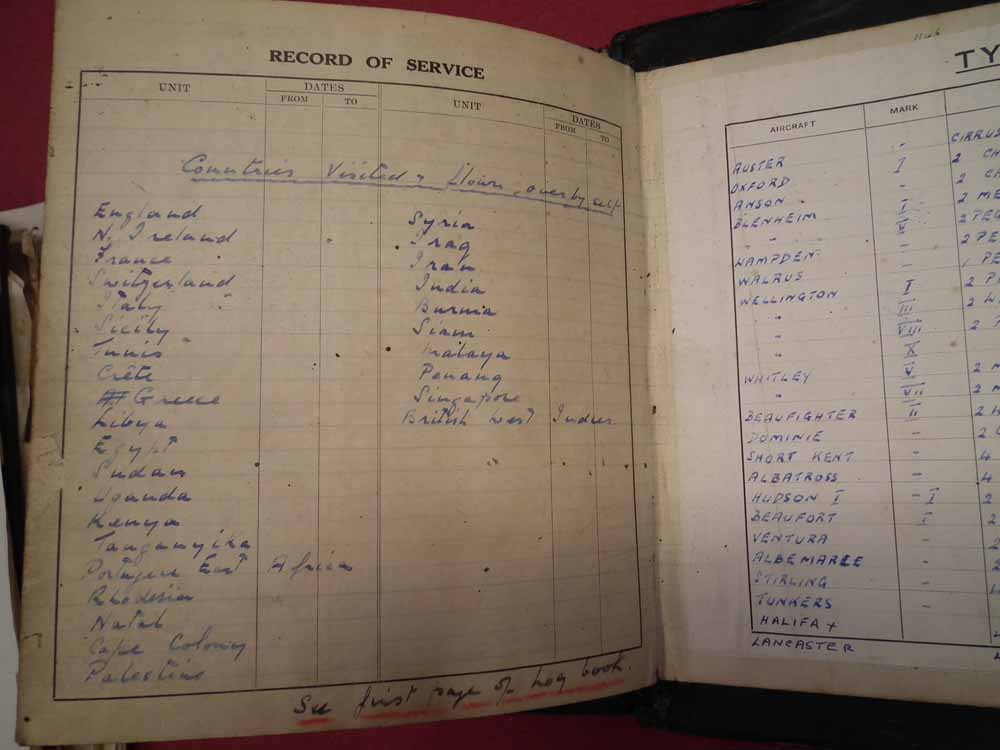 RECORD OF SERVICE
UNIT DATES FROM TO UNIT DATES FROM TO
Countries Visited & flown over by self
England
N. Ireland
France
Switzerland
Italy
Sicily
Tunis
Crête
Greece
Libya
Egypt
Sudan
Uganda
Kenya
Tanganyika
Portuguese East Africa
Rhodesia
Natal
Cape Colony
Palestine
Syria
Iraq
Iran
India
Burma
Siam
Malaya
Penang
Singapore
British West Indies
See first page of Log book.
TY
AIRCRAFT MARK
AUSTER - CIRRU
OXFORD I 2 CH
ANSON - 2 CH
BLENHEIM I 2 ME
" V 2 PE
HAMPDEN - 2 PE
WALRUS - 1 PE
WELLINGTON I 2 P
" III 2
" VIII 2
" X
WHITLEY V 2
" VII 2
BEAUFIGHTER II 2 H
DOMINIE - 2
SHORT KENT - 4
ALBATROSS - 4
HUDSON I - I 2
BEAUFORT I 2
VENTURA 2
ALBEMARLE - 2
STIRLING - 4
JUNKERS -
HALIFAX
LANCASTER 4